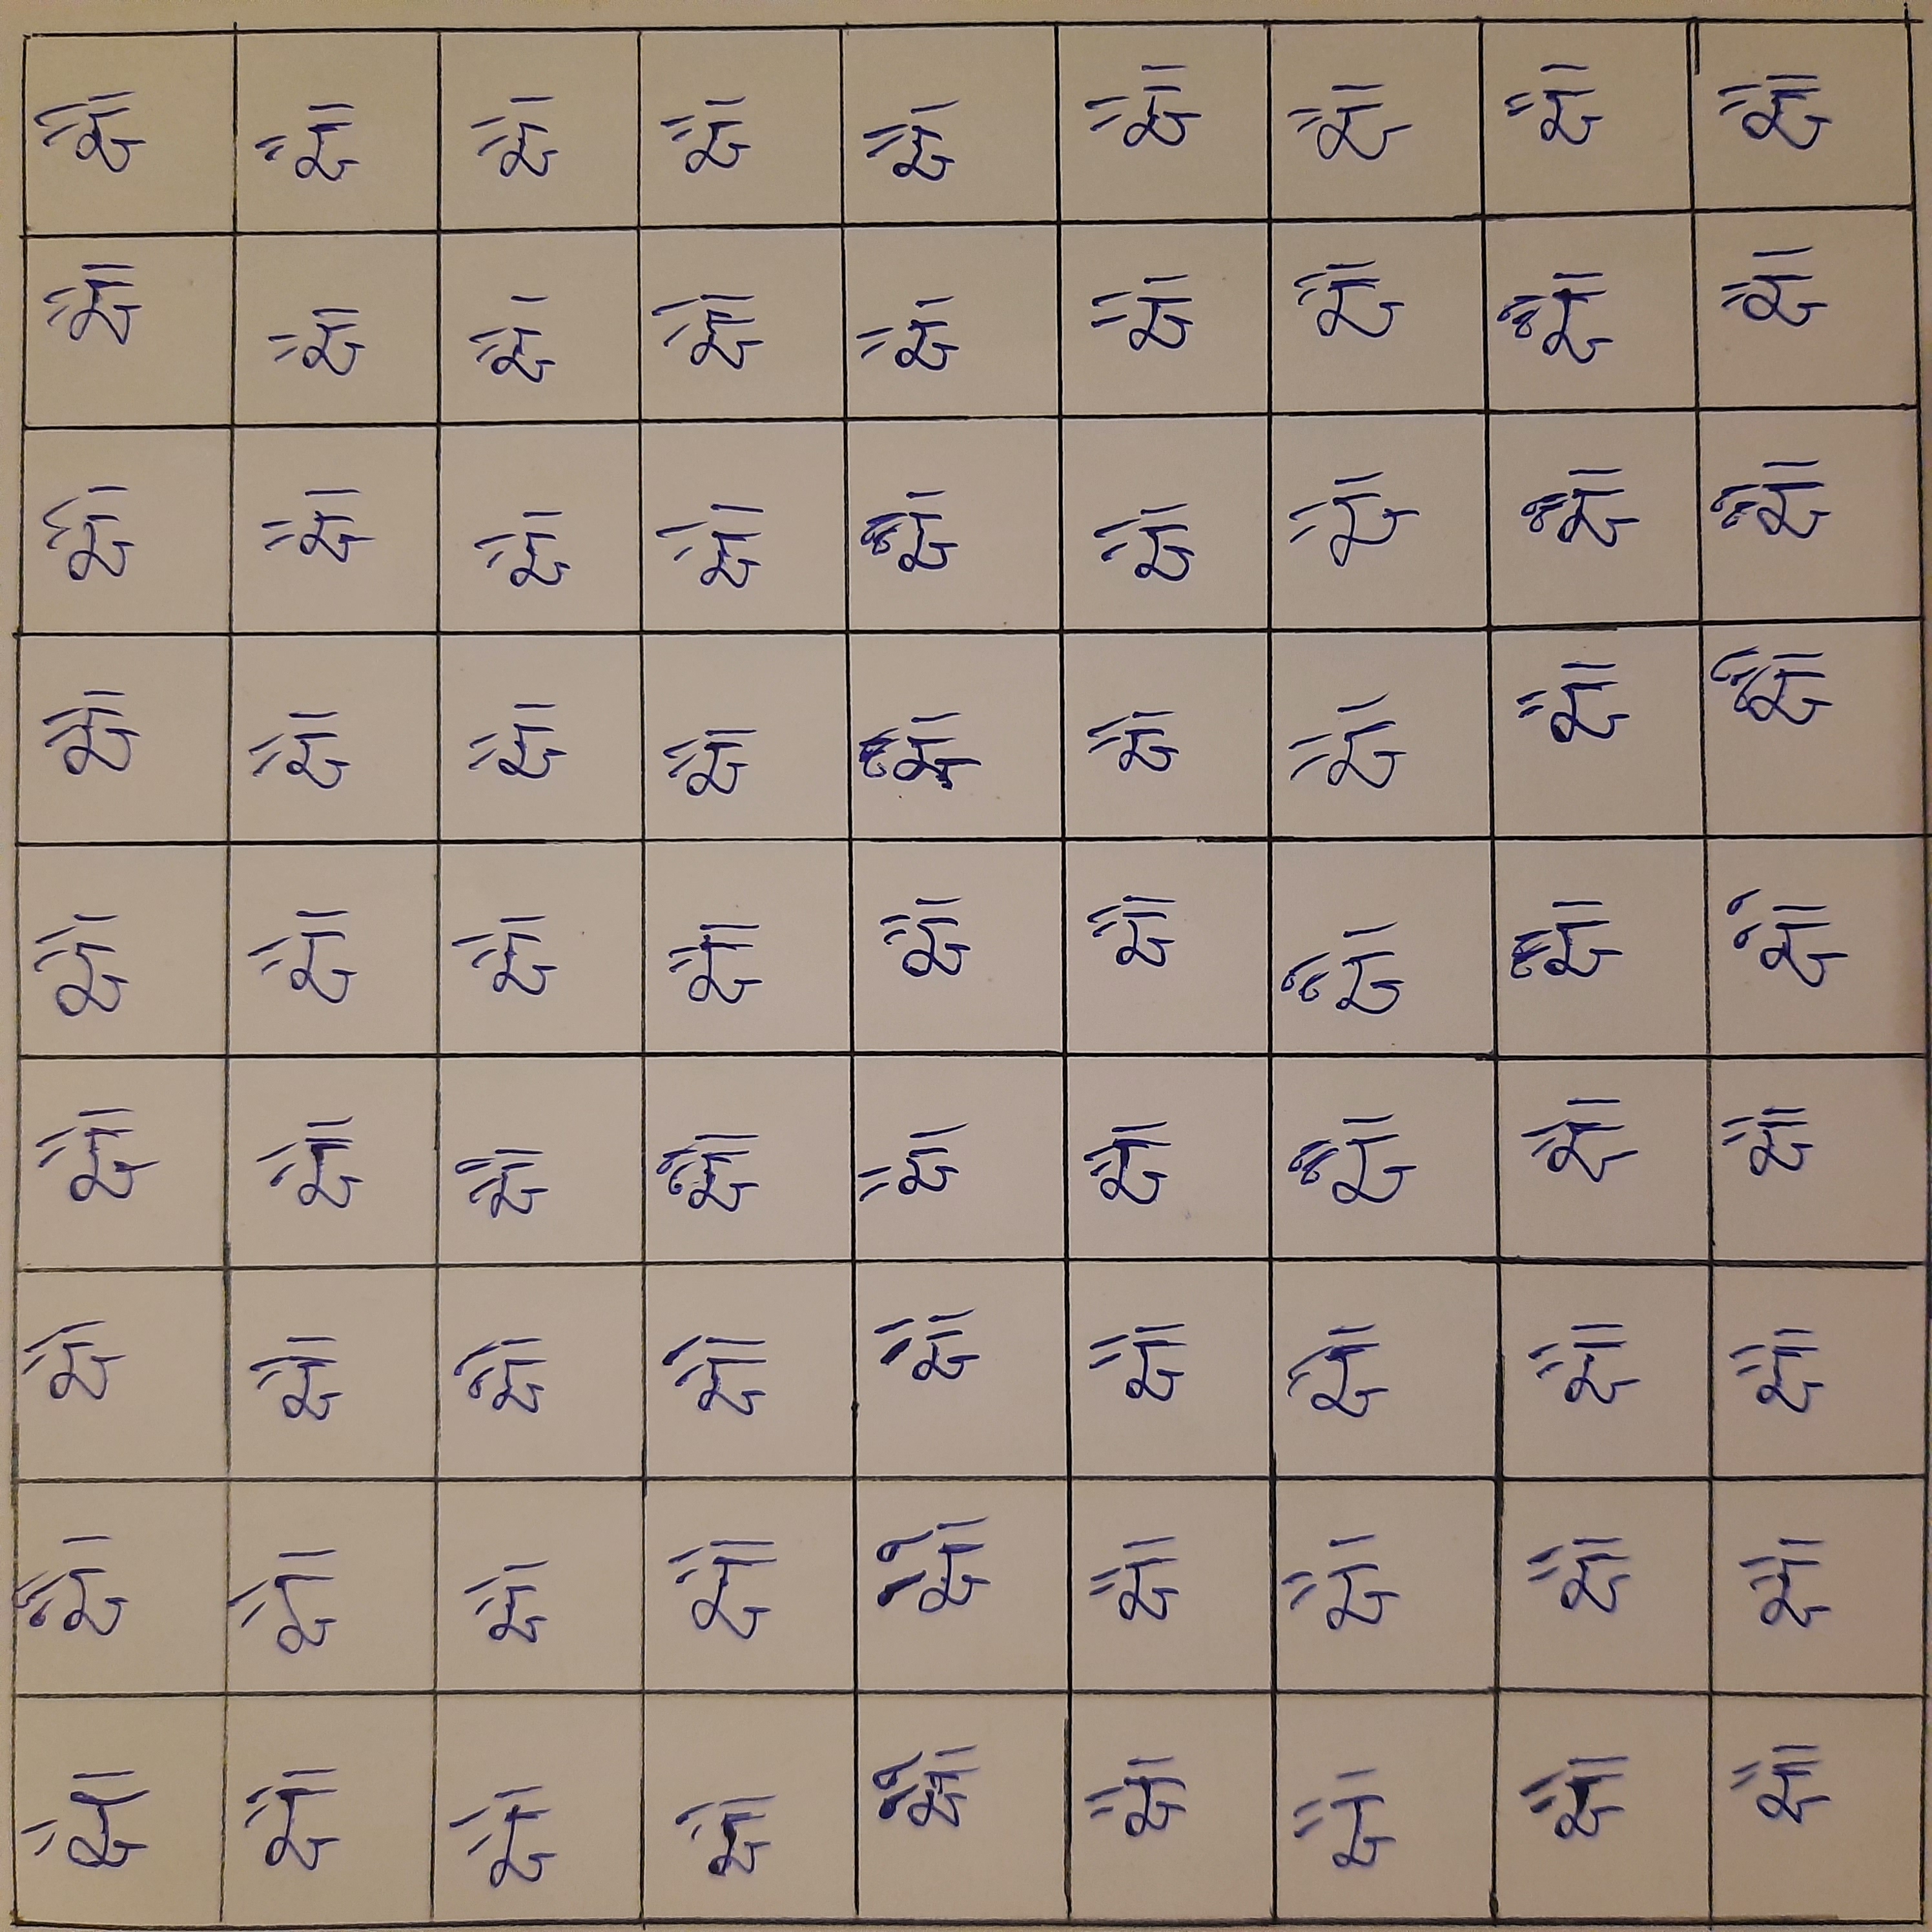 क्षौ क्षौ क्षौ क्षौ क्षौ क्षौ क्षौ क्षौ क्षौ
क्षौ क्षौ क्षौ क्षौ क्षौ क्षौ क्षौ क्षौ क्षौ
क्षौ क्षौ क्षौ क्षौ क्षौ क्षौ क्षौ क्षौ क्षौ
क्षौ क्षौ क्षौ क्षौ क्षौ क्षौ क्षौ क्षौ क्षौ
क्षौ क्षौ क्षौ क्षौ क्षौ क्षौ क्षौ क्षौ क्षौ
क्षौ क्षौ क्षौ क्षौ क्षौ क्षौ क्षौ क्षौ क्षौ
क्षौ क्षौ क्षौ क्षौ क्षौ क्षौ क्षौ क्षौ क्षौ
क्षौ क्षौ क्षौ क्षौ क्षौ क्षौ क्षौ क्षौ क्षौ
क्षौ क्षौ क्षौ क्षौ क्षौ क्षौ क्षौ क्षौ क्षौ